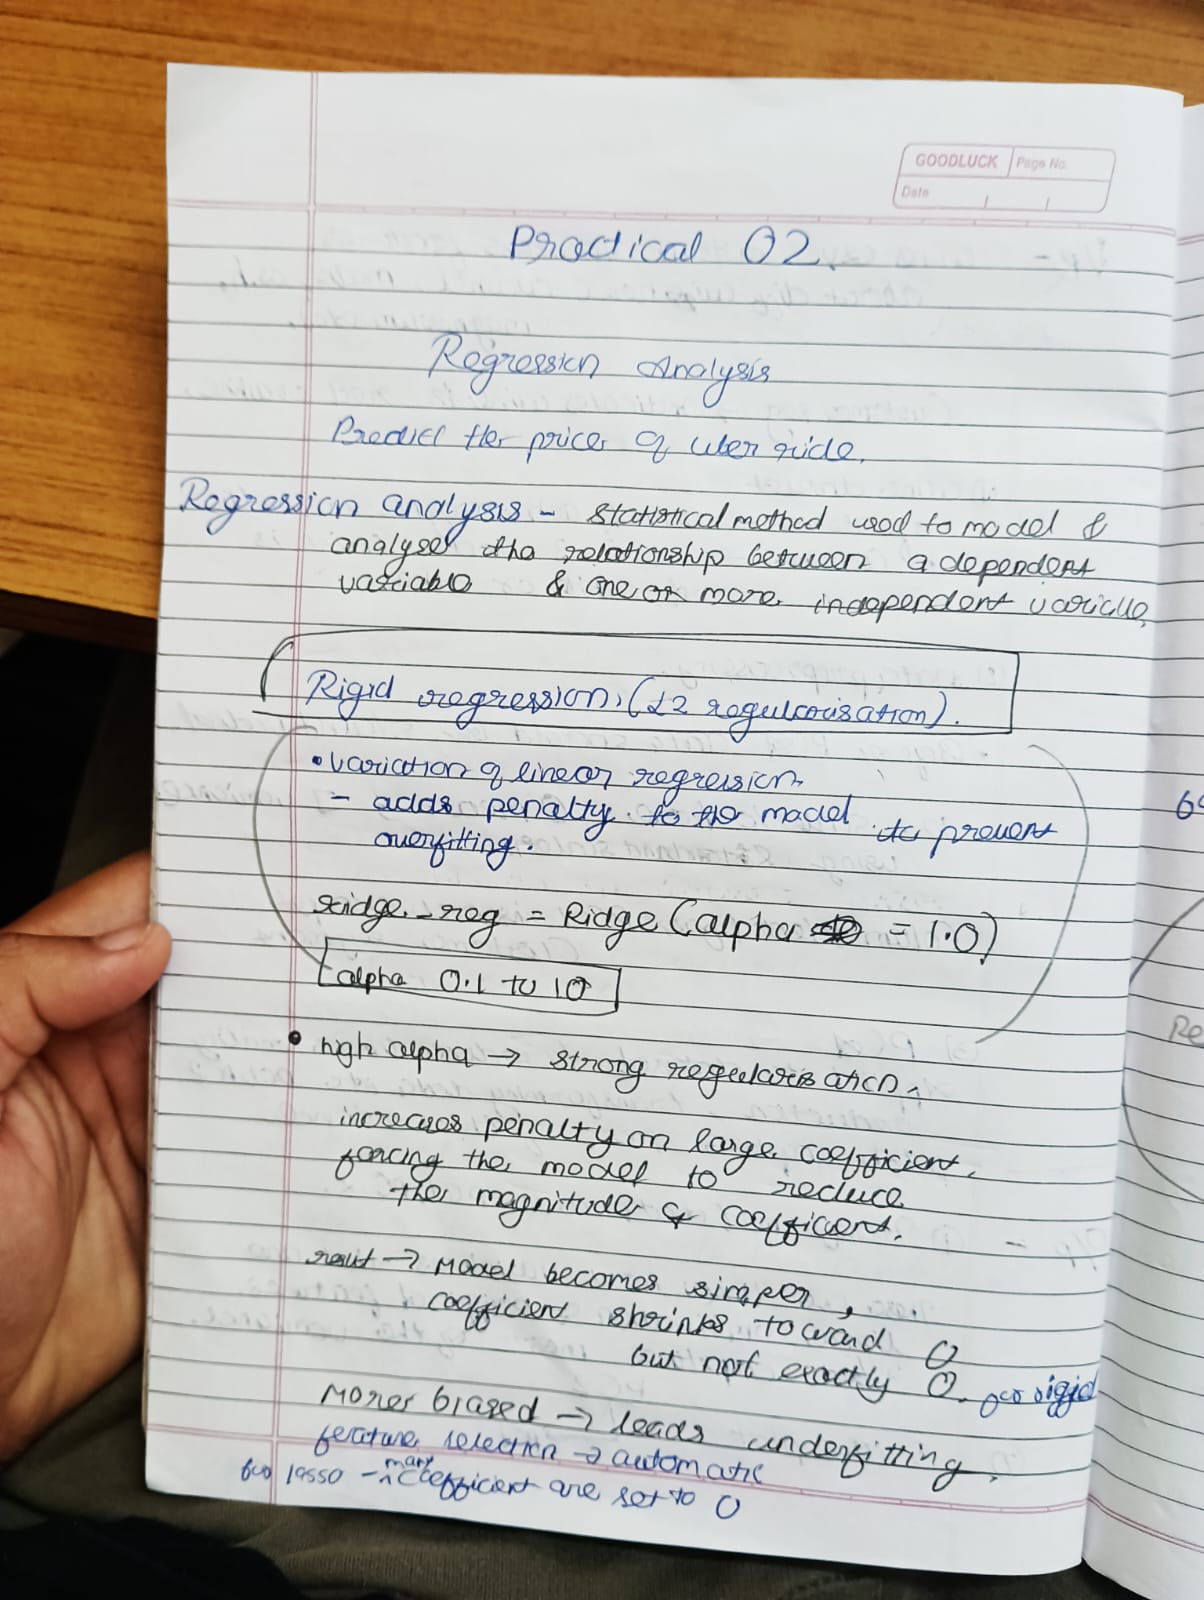 GOODLUCK Page No.
Date
Practical 02.
Regression Analysis
Predict the price of uber ride.
Regression analysis - statistical method used to model &
analyse the relationship between a dependent
variable & one or more independent variable.
Rigid regression. (L2 regularisation).
• variation of linear regression.
- adds penalty to the model to prevent
overfitting.
ridge_reg = Ridge (alpha = 1.0)
alpha 0.1 to 10
• high alpha → strong regularisation,
increases penalty on large coefficient,
forcing the model to reduce
the magnitude of coefficient.
result → Model becomes simper,
coefficient shrinks toward 0
but not exactly 0. for rigid
More biased → leads underfitting.
feature selection → automatic
for lasso - many coefficient are set to 0
Re